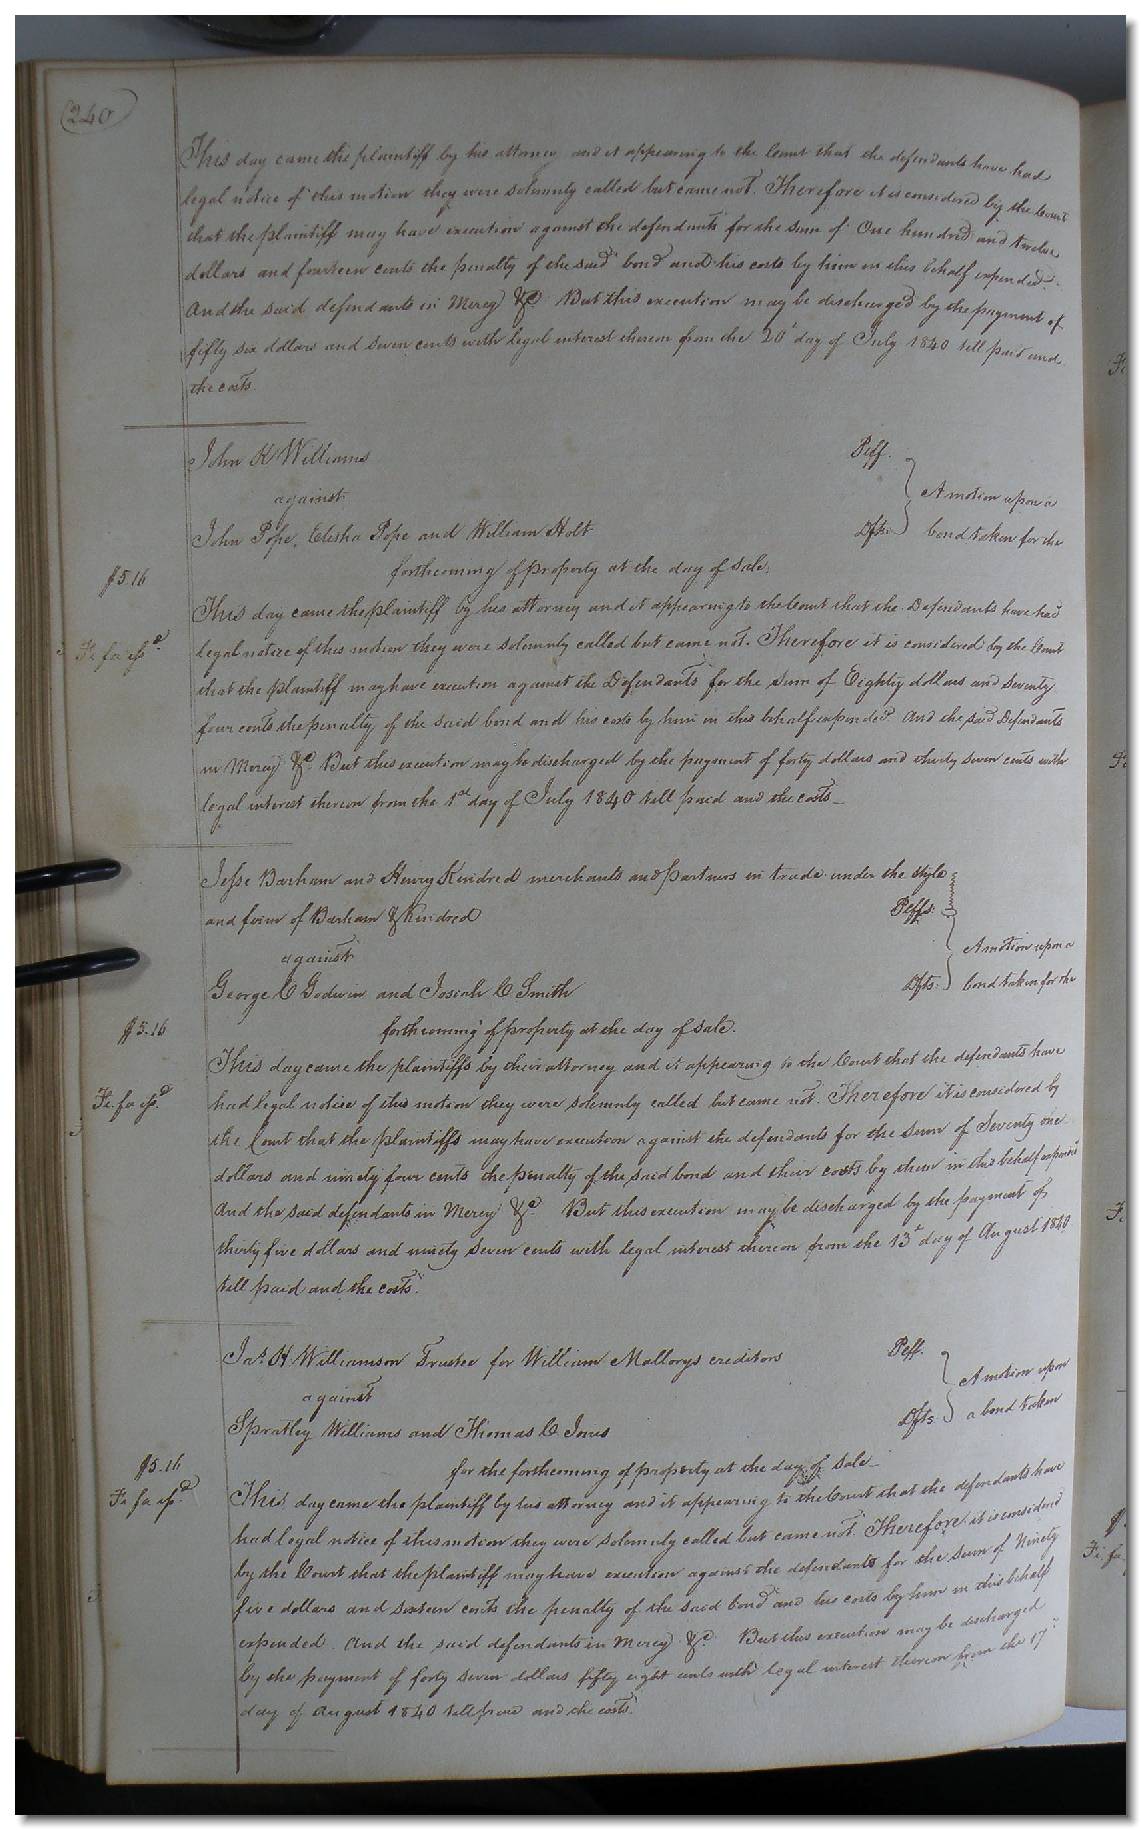 240
This day came the plaintiff by his attorney and it appearing to the Court that the defendants have had
legal notice of this motion they were solemnly called but came not. Therefore it is considered by the Court
that the plaintiff may have execution against the defendants for the sum of One hundred and twelve
dollars and fourteen cents the penalty of the said bond and his costs by him in this behalf expended.
And the said defendants in Mercy &c. But this execution may be discharged by the payment of
fifty six dollars and seven cents with legal interest thereon from the 20th day of July 1840 till paid and
the costs.
John H Williams Plff.
against A motion upon a
John Pope, Elisha Pope and William Holt Dfts. bond taken for the
forthcoming of property at the day of sale.
$5.16
This day came the plaintiff by his attorney and it appearing to the Court that the Defendants have had
Fi. fa issd.
legal notice of this motion they were solemnly called but came not. Therefore it is considered by the Court
that the plaintiff may have execution against the Defendants for the sum of Eighty dollars and seventy
four cents the penalty of the said bond and his costs by him in this behalf expended. And the said Defendants
in Mercy &c. But this execution may be discharged by the payment of forty dollars and thirty seven cents with
legal interest thereon from the 1st day of July 1840 till paid and the costs
Jesse Barham and Henry Kindred merchants and partners in trade under the style
and firm of Barham & Kindred Plffs.
against A motion upon a
George C Godwin and Josiah C Smith Dfts. bond taken for the
forthcoming of property at the day of sale.
$5.16
This day came the plaintiffs by their attorney and it appearing to the Court that the defendants have
Fi. fa issd.
had legal notice of this motion they were solemnly called but came not. Therefore it is considered by
the Court that the plaintiffs may have execution against the defendants for the sum of Seventy one
dollars and ninety four cents the penalty of the said bond and their costs by them in this behalf expended
And the said defendants in Mercy &c. But this execution may be discharged by the payment of
thirty five dollars and ninety seven cents with legal interest thereon from the 13th day of August 1840
till paid and the costs.
Jas. H Williamson Trustee for William Mallorys creditors Plff.
against A motion upon
Spratley Williams and Thomas C Jones Dfts. a bond taken
for the forthcoming of property at the day of sale
$5.16
This day came the plaintiff by his attorney and it appearing to the Court that the defendants have
Fi. fa issd.
had legal notice of this motion they were solemnly called but came not. Therefore it is considered
by the Court that the plaintiff may have execution against the defendants for the sum of Ninety
five dollars and sixteen cents the penalty of the said bond and his costs by him in this behalf
expended. And the said defendants in Mercy &c. But this execution may be discharged
by the payment of forty seven dollars fifty eight cents with legal interest thereon from the 17th
day of August 1840 till paid and the costs.